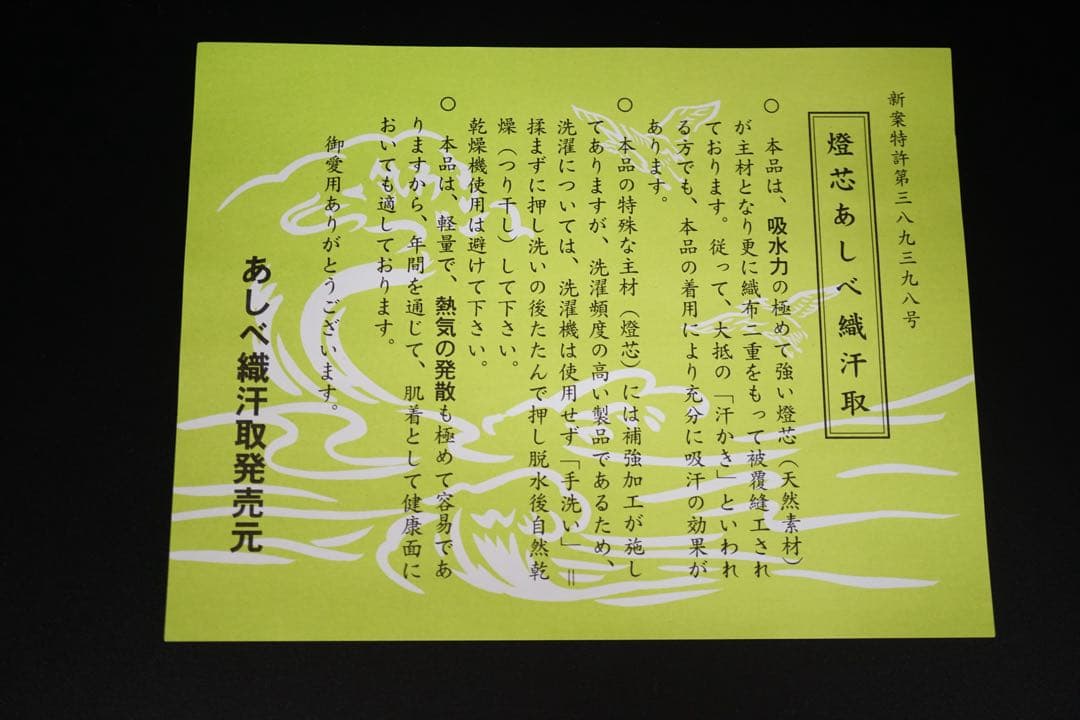 新案特許第三八九三九八号
燈芯あしべ織汗取
○ 本品は、吸水力の極めて強い燈芯（天然素材）
が主材となり更に織布二重をもって被覆縫工され
ております。従って、大抵の「汗かき」といわれ
る方でも、本品の着用により充分に吸汗の効果が
あります。
○ 本品の特殊な主材（燈芯）には補強加工が施し
てありますが、洗濯頻度の高い製品であるため、
洗濯については、洗濯機は使用せず「手洗い」＝
揉まずに押し洗いの後たたんで押し脱水後自然乾
燥（つり干し）して下さい。
乾燥機使用は避けて下さい。
○ 本品は、軽量で、熱気の発散も極めて容易であ
りますから、年間を通じて、肌着として健康面に
おいても適しております。
御愛用ありがとうございます。
あしべ織汗取発売元